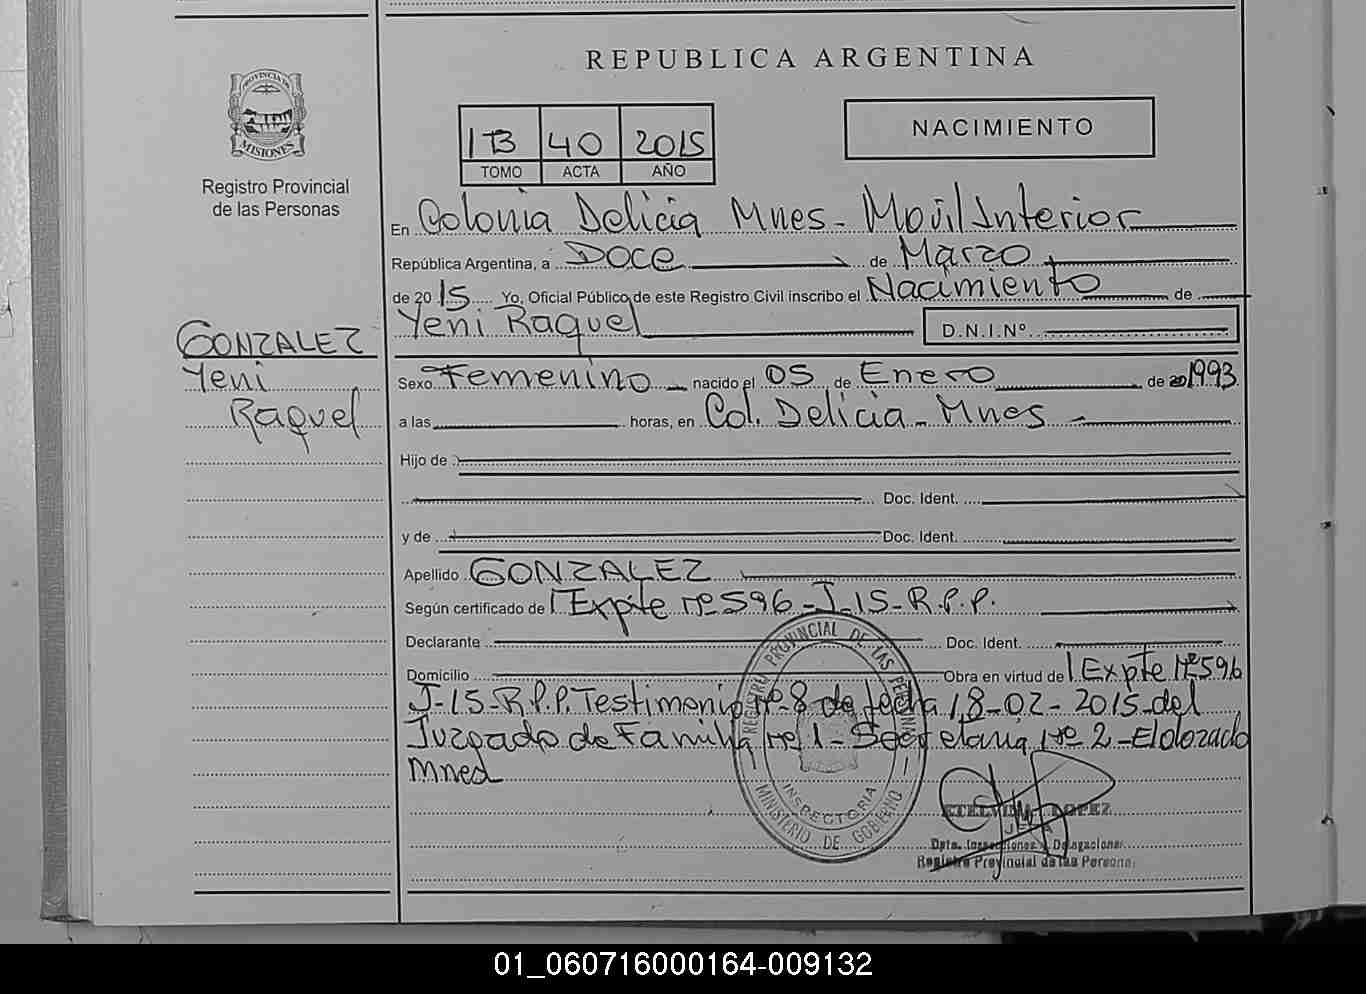 REPUBLICA ARGENTINA
PROVINCIA DE
MISIONES
Registro Provincial
de las Personas
1B 40 2015
TOMO ACTA AÑO
NACIMIENTO
En Colonia Delicia Mnes - Movil Interior
República Argentina, a Doce de Marzo
de 2015 Yo, Oficial Público de este Registro Civil inscribo el Nacimiento de
Yeni Raquel D.N.I.Nº
GONZALEZ
Yeni
Raquel
Sexo Femenino nacido el 05 de Enero de 20 1993
a las horas, en Col. Delicia - Mnes -
Hijo de
Doc. Ident.
y de Doc. Ident.
Apellido GONZALEZ
Según certificado de Expte Nº 596 - J - 15 - R.P.P.
Declarante Doc. Ident.
Domicilio Obra en virtud de Expte Nº 596
J-15-R.P.P. Testimonio nº 8 de fecha 18-02-2015 del
Juzgado de Familia nº 1 - Secretaria nº 2 - Eldorado
REGISTRO PROVINCIAL DE LAS PERSONAS
INSPECTORIA
MINISTERIO DE GOBIERNO
LOPEZ
JEFA
Dpto. Inspecciones y Delegaciones
Registro Provincial de las Personas
01_060716000164-009132